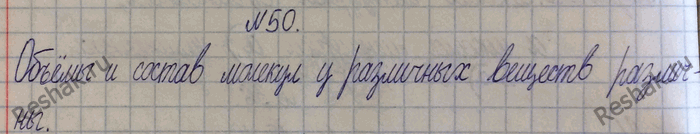 №50.
Объёмы и состав молекул у различных веществ различ-
ны.
Reshak.ru
Reshak.ru